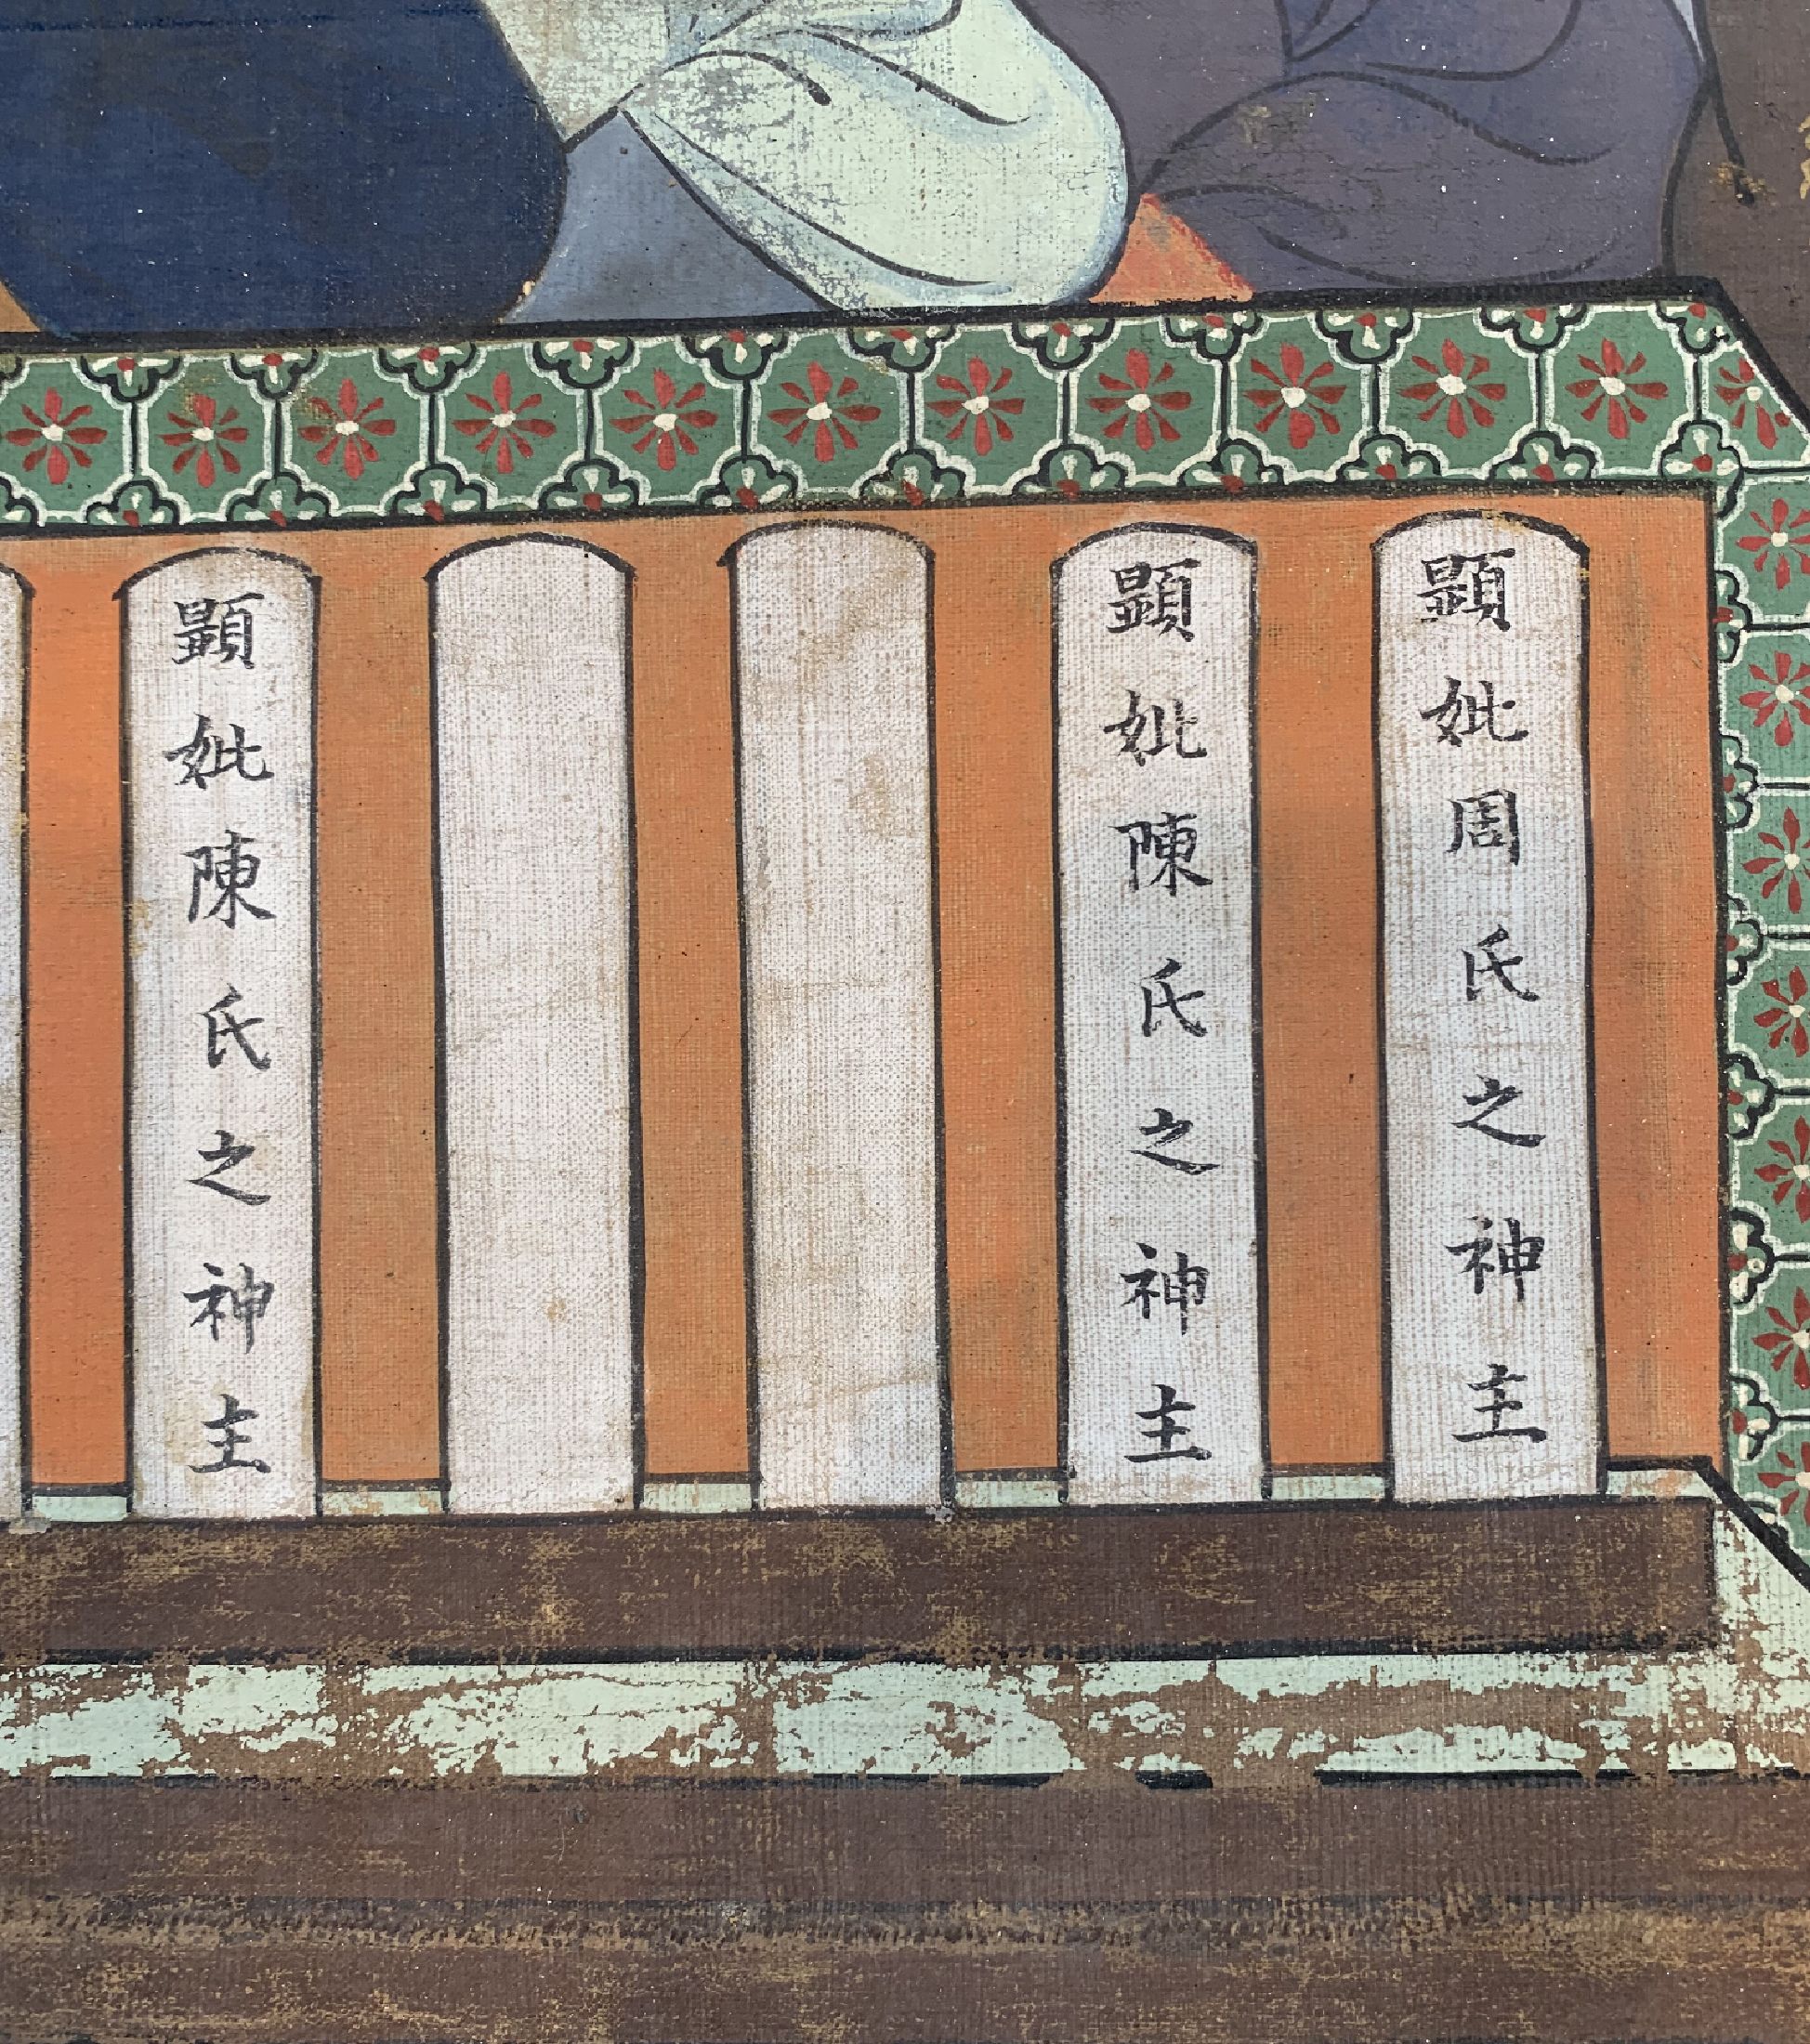 顕妣周氏之神主
顕妣陳氏之神主
顕妣陳氏之神主